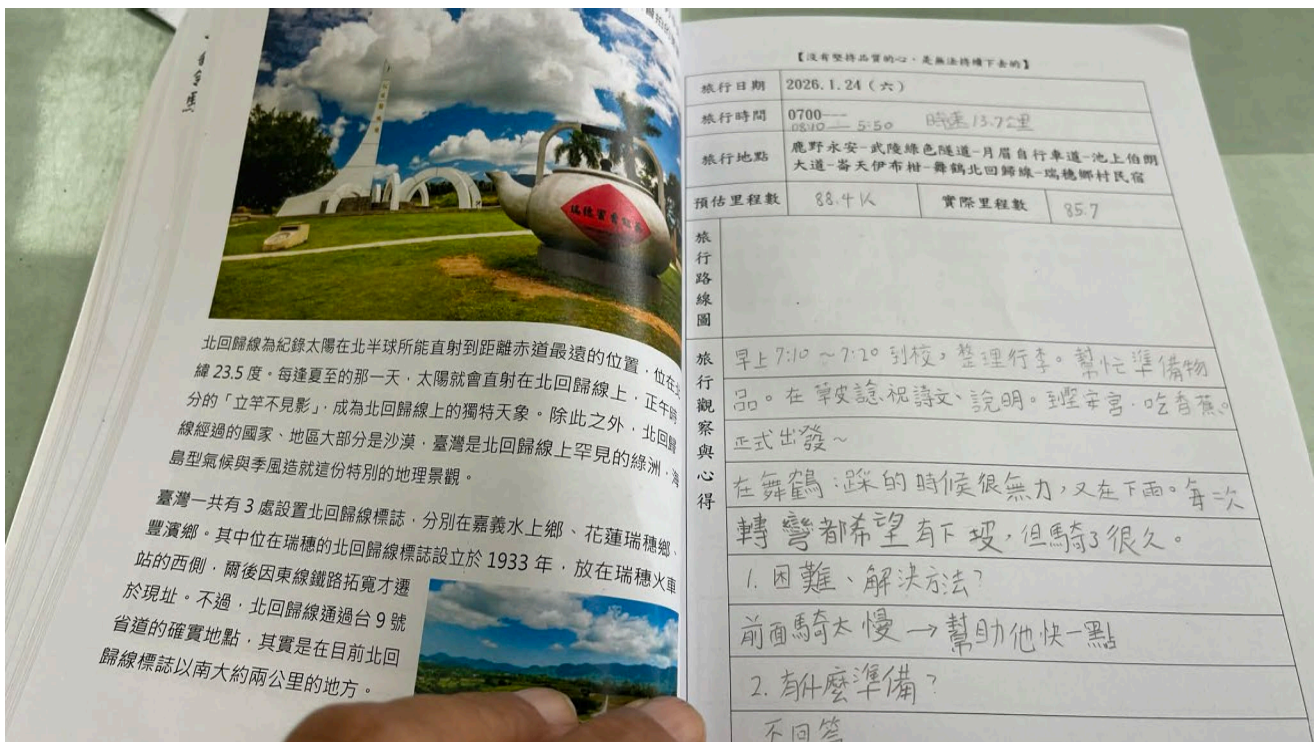 北回歸線為紀錄太陽在北半球所能直射到距離赤道最遠的位置，位在北
緯 23.5 度。每逢夏至的那一天，太陽就會直射在北回歸線上，正午時
分的「立竿不見影」，成為北回歸線上的獨特天象。除此之外，北回歸
線經過的國家、地區大部分是沙漠，臺灣是北回歸線上罕見的綠洲，海
島型氣候與季風造就這份特別的地理景觀。
臺灣一共有 3 處設置北回歸線標誌，分別在嘉義水上鄉、花蓮瑞穗鄉、
豐濱鄉。其中位在瑞穗的北回歸線標誌設立於 1933 年，放在瑞穗火車
站的西側，爾後因東線鐵路拓寬才遷
於現址。不過，北回歸線通過台 9 號
省道的確實地點，其實是在目前北回
歸線標誌以南大約兩公里的地方。
【沒有堅持品質的心，是無法持續下去的】
旅行日期 2026.1.24（六）
旅行時間 0700——
08:10 — 5:50 時速13.7公里
旅行地點 鹿野永安-武陵綠色隧道-月眉自行車道-池上伯朗
大道-崙天伊布柑-舞鶴北回歸線-瑞穗鄉村民宿
預估里程數 88.4K 實際里程數 85.7
旅行路線圖
旅行觀察與心得
早上 7:10 ~ 7:20 到校，整理行李。幫忙準備物
品。在草皮諗祝詩文、說明。到堅安宮，吃香蕉。
正式出發~
在舞鶴：踩的時候很無力，又在下雨。每一次
轉彎都希望有下坡，但騎了很久。
1. 困難、解決方法？
前面騎太慢→幫助他快一點
2. 有什麼準備？
不回答